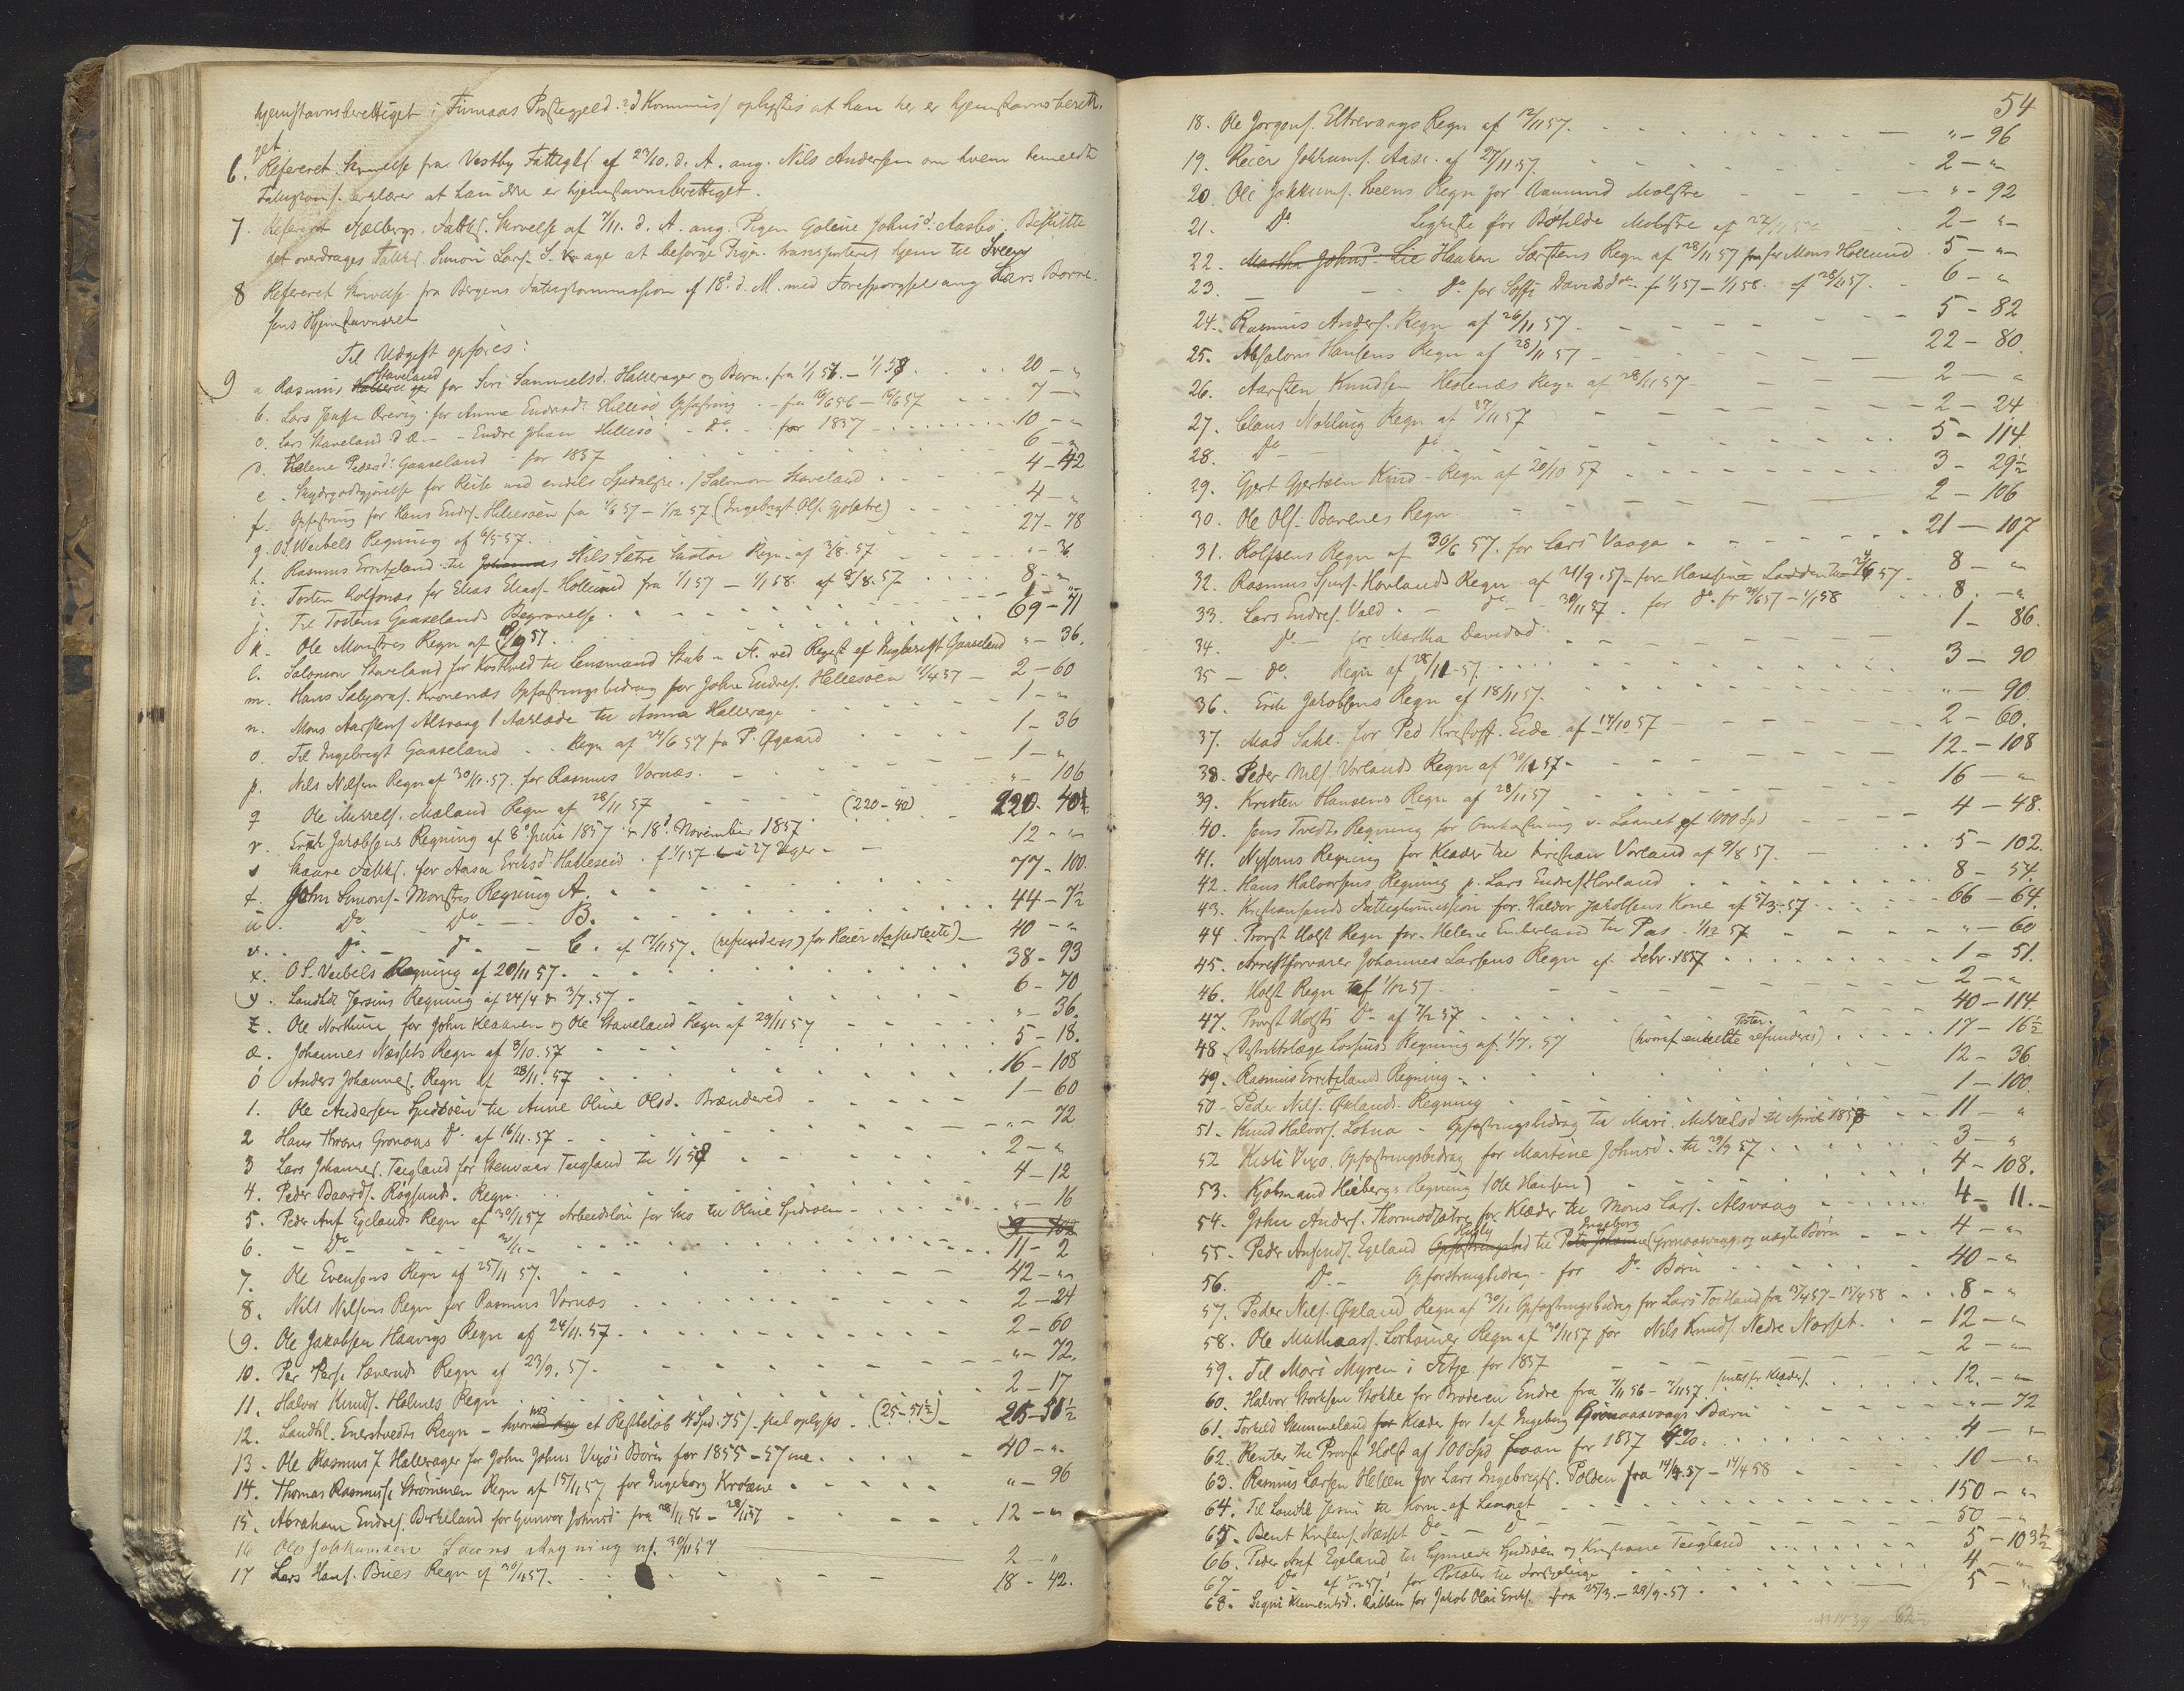 hjemstavnsberettiget i Finnaas Præstegjeld. Kommis. oplystes at han her er hjemstavnsberetti-
get
6. Refereret Skrivelse fra Vestby Fattigk. af 23/10 d. A. ang. Nils Andersen om hvem bemeldte
Fattigkoms. erklærer at han ikke er hjemstavnsberettiget.
7. Refereret Fattigk. Skrivelse af 7/11. d. A. ang. Pigen Goline Johnsd. Aasbø. Besluttet
det overdrages Fattigk. Simon Lars. at besørge Pigen transporteret hjem til Sveen
8 Refereret Skrivelse fra Bergens Fattigkommission af 18d d. M. med Forespørgsel ang Lars Borre-
sens Hjemstavnsret
Til Udgift opføres:
9 a Rasmus Staveland for Siri Samuelsd. Hallerager og Barn. fra 1/1 57 - 1/1 58 . . 20 - "
b. Lars for Anna Endresd. Hillesø Opfostring - fra 16/6 56 - 16/6 57 . . 7 - "
c. Lars Staveland - Endre Johan Hillesø - do - for 1857 . . 10 - "
d. Helene Pedersd. Gaaseland - for 1857 6 - "
e. Skydsgodtgjørelse for Reise med endels Spedalske. / Salomon Staveland . . 4 - 42
f. Opfostring for Hans Endres. Hillesøen fra 1/6 57 - 1/12 57 (Ingebrigt Ols. Gjøsætre) . . 4 - "
g. O S. Weibels Regning af 6/5 57. . . 27 - 78
h. Rasmus Erritzland til Nils Sætre Regn. af 3/8. 57 . . " - 36
i. Torsten Rolfsnæs for Elias Elias. Hollund fra 1/1 57 - 1/1 58. af 8/8. 57 . . 8 - "
j. Til Torsten Gaaselands Begravelse . . 1 - "
k. Ole Monstres Regn af 57 . . 69 - 71
l. Salomon Staveland for Kosthold til Lensmand Stub ved Regist. af Ingebrigt Gaaseland " - 36.
m. Hans Salgers. Kronenæs Opfostringsbidrag for John Endres. Hillesøen 1/4 57 - 2 - 60
n. Mons Aarstens. Alsvaag 1 Aarlade til Anna Hallerage . . 1 - "
o. Til Ingebrigt Gaaseland . . Regn af 24/6 57 fra P. Øgaard 1 - 36
p. Nils Nilsen Regn af 30/11. 57. for Rasmus Vornæs. . . 1 - "
q Ole Mikkels. Mæland Regn af 28/11 57 . . " - 106
r. Erik Jakobsens Regning af 8d Juni 1857 & 18d November 1857 (220 - 40) 220 - 40½
s Skaare Fattigk. for Aasa Eriksd. Halleseid. f. 1/1 57 à 27 Uger - - 12 - "
t. John Simons. Monstres Regning A. . . 77 - 100
u. Do Do - B. . . 44 - 7½
v. Do - do - C. af 17/11 57. (refunderes) for Reier 40 - "
x. O S. Weibels Regning af 20/11 57. . . 38 - 93
y. Landhdl. Jersins Regning af 24/4 & 3/7. 57 . . 6 - 70
z. Ole Northun for John Klaasen og Ole Staveland Regn af 29/11 57 " - 36.
æ. Johannes Næssets Regn af 3/10. 57 . . 5 - 18.
ö Anders Johannes. Regn af 28/11. 57 . . 16 - 108
1. Ole Andersen Spidsøen til Anne Oline Olsd. Brændeved . . 1 - 60
2 Hans Grønaas Do. af 16/11. 57 . . " - 72
3 Lars Johannes. Teigland for Teigland til 1/1 58 . . 2 - "
4. Peder Baards. Røgsund. Regn. . . 4 - 12
5. Peder Anf. Egelands Regn af 30/11 57 Arbeidsløn for Sko til Oline Spidsøen . . " - 16
6. - Do - 30/11 - . . 11 - 2
7. Ole Evensens Regn af 25/11 57. . . 42 - "
8. Nils Nilsens Regn for Rasmus Vornæs . . 2 - 24
9. Ole Jakobsen Haavigs Regn af 24/11. 57 . . 2 - 60
10. Per Pers. Sævereids Regn af 23/9. 57. . . " - 72.
11. Halvor Knuds. Holmes Regn . . 2 - 17
12. Landhdl. Enerstvedts Regn - et Restbeløb 4 Spd. 75 s skal oplyses . (25 - 51½) - 25 - 51½
13. Ole Rasmus. Hallerager for John Johns Vixø's Børn for 1855 - 57 . . 40 - "
14. Thomas Rasmus. Strømmen Regn af 15/11 57 for Ingeborg . . " - 96
15. Abraham Endres. Birkeland for Gunvor Johnsd. fra 28/11 56 - 28/11 57 . . 12 - "
16 Ole Jokkumsen Leens Regning af. 30/11 57 2 - "
17 Lars Hans. Bues Regn af 30/11 57. . . 18 - 42.
54
18. Ole Jørgens. Eltrevaags Regn af 12/11 57. . . " - 96
19. Reier Jokkums. Aase. af 27/11 57. . . 2 - "
20. Ole Jokkums. Leens Regn for Aamund Molstre . . " - 92
21. Do Ligkiste for Bothilde Molstre af 27/11 57 2 - "
22. Haaken Særstens Regn af 28/11 57 for Mons Hollund . 5 - "
23. - - Do for Soffi Davidsd. f 1/1 57 - 1/1 58. af 28/11 57. 6 - "
24. Rasmus Anders. Regn af 26/11 57. . . 5 - 82
25. Absalon Hansens Regn af 28/11 57 . . 22 - 80.
26. Aarsten Knudsen Hestenæs Regn af 28/11 57 . . 2 - "
27. Claus Nøkling Regn af 27/11 57 . . 2 - 24
28. Do - do . . 5 - 114.
29. Gjert Gjertsen Kind - Regn af 20/10 57 . . 3 - 29½
30. Ole Ols. Børenes Regn. . . 2 - 106
31. Rolfsens Regn af 30/6 57. for Lars Vaage . . 21 - 107
32. Rasmus Sjurs. Hovlands Regn af 21/9. 57 - for til 24/6 57 - 8 - "
33. Lars Endres. Vold. - do - 30/11 57. for do. fr 24/6 57 - 1/1 58 . . 8. - "
34. Do - for Martha Davidsd. . . 1 - 86.
35 - do. Regn af 28/11 57. . . 3 - 90
36. Erik Jakobsens Regn af 18/11 57. . . " - 90.
37. Mad Sahl. for Ped Kristoff. Eide af 14/10 57 . . 2 - 60.
38. Peder Nils. Vorlands Regn af 30/11 57 . . 12. - 108
39. Kristen Hansens Regn af 28/11 57 . . 16 - "
40. Jens Tvedts Regning for Omkostning v. Laanet af 1000 Spd . . 4 - 48.
41. Nysoms Regning for Klæder til Kristian Vorland af 9/8 57. . . 5 - 102.
42. Hans Halvorsens Regning p. Lars Endres. Hovland . . 8 - 54.
43. Kristiansunds Fattigkommission for Haldor Jakobsens Kone af 5/3. 57 . . 66 - 64.
44. Provst Holst Regn for Helene Emberland til Pas. 1/12 57 . . " - 60
45. Arrestforvarer Johannes Larsens Regn af Febr. 1857 . . 1 - 51.
46. Holst Regn af 1/12 57 . . 2 - "
47. Provst Holsts Do. af 7/12 57 . . 40 - 114.
48. Distriktslæge Lossius's Regning af 1/7. 57 (hvoraf enkelte Poster refunderes) . . 17 - 16½
49. Rasmus Erritzlands Regning . . 12 - 36
50. Peder Nils. Øklands Regning . . 1 - 100.
51. Knud Halvors. Lokna - Opfostringsbidrag til Mari Mikkelsd. til April 1858 . . 11 - "
52 Kisti Vixø. Opfostringsbidrag for Martine Johnsd. til 29/9 57 . . 3 - "
53. Kjøbmand Heibergs Regning / Ole Hansen) . . 4 - 108.
54. John Anders. Thormodsætre for Klæder til Mons Lars. Alsvaag . . 4 - 11. -
55. Peder Anfinds. Egeland Huslig til Ingeborg Grønaasvaag og uægte Børn . . 4 - "
56. Do - Opfostringsbidrag - for Do. Børn . . 40 - "
57. Peder Nils. Økland Regn af 30/11. Opfostringsbidrag for Lars fra 15/4 57 - 15/4 58 . . 8 - "
58. Ole Mathias. Regn af 30/11 57 for Nils Knuds. Nedre Næsset. . . 12 - "
59. Til Mari Myren i Fitje for 1857 . . 2 - "
60. Halvor Størksen Stokke for Broderen Endre fra 7/11 56 - 7/11 57. (intet for Klæder). . . 12. - "
61. Torkild Hummeland Klæder for 1 af Ingeborg Grønaasvaags Børn . . " - 72
62. Renter til Provst Holst af 100 Spd Laan for 1857 4%. . . 4 - "
63. Rasmus Larsen Helleen for Lars Ingebrigts. Polden fra 14/4 57 - 14/4 58 . . 10 - "
64. Til Landhdl Jersin til Korn af Laanet . . 150 - "
65. Bent Knkens. Næsset Do - Do . . 50 - "
66. Peder Anf Egeland til Spidsøen og Kristiane Teigland . . 5 - 103½
67. Do af 57 for Poteter til . . 4 - "
68. Signi Klementsd. Rabben for Jakob Olai Eriks. fra 25/3. - 29/9. 57 . . 5 - "